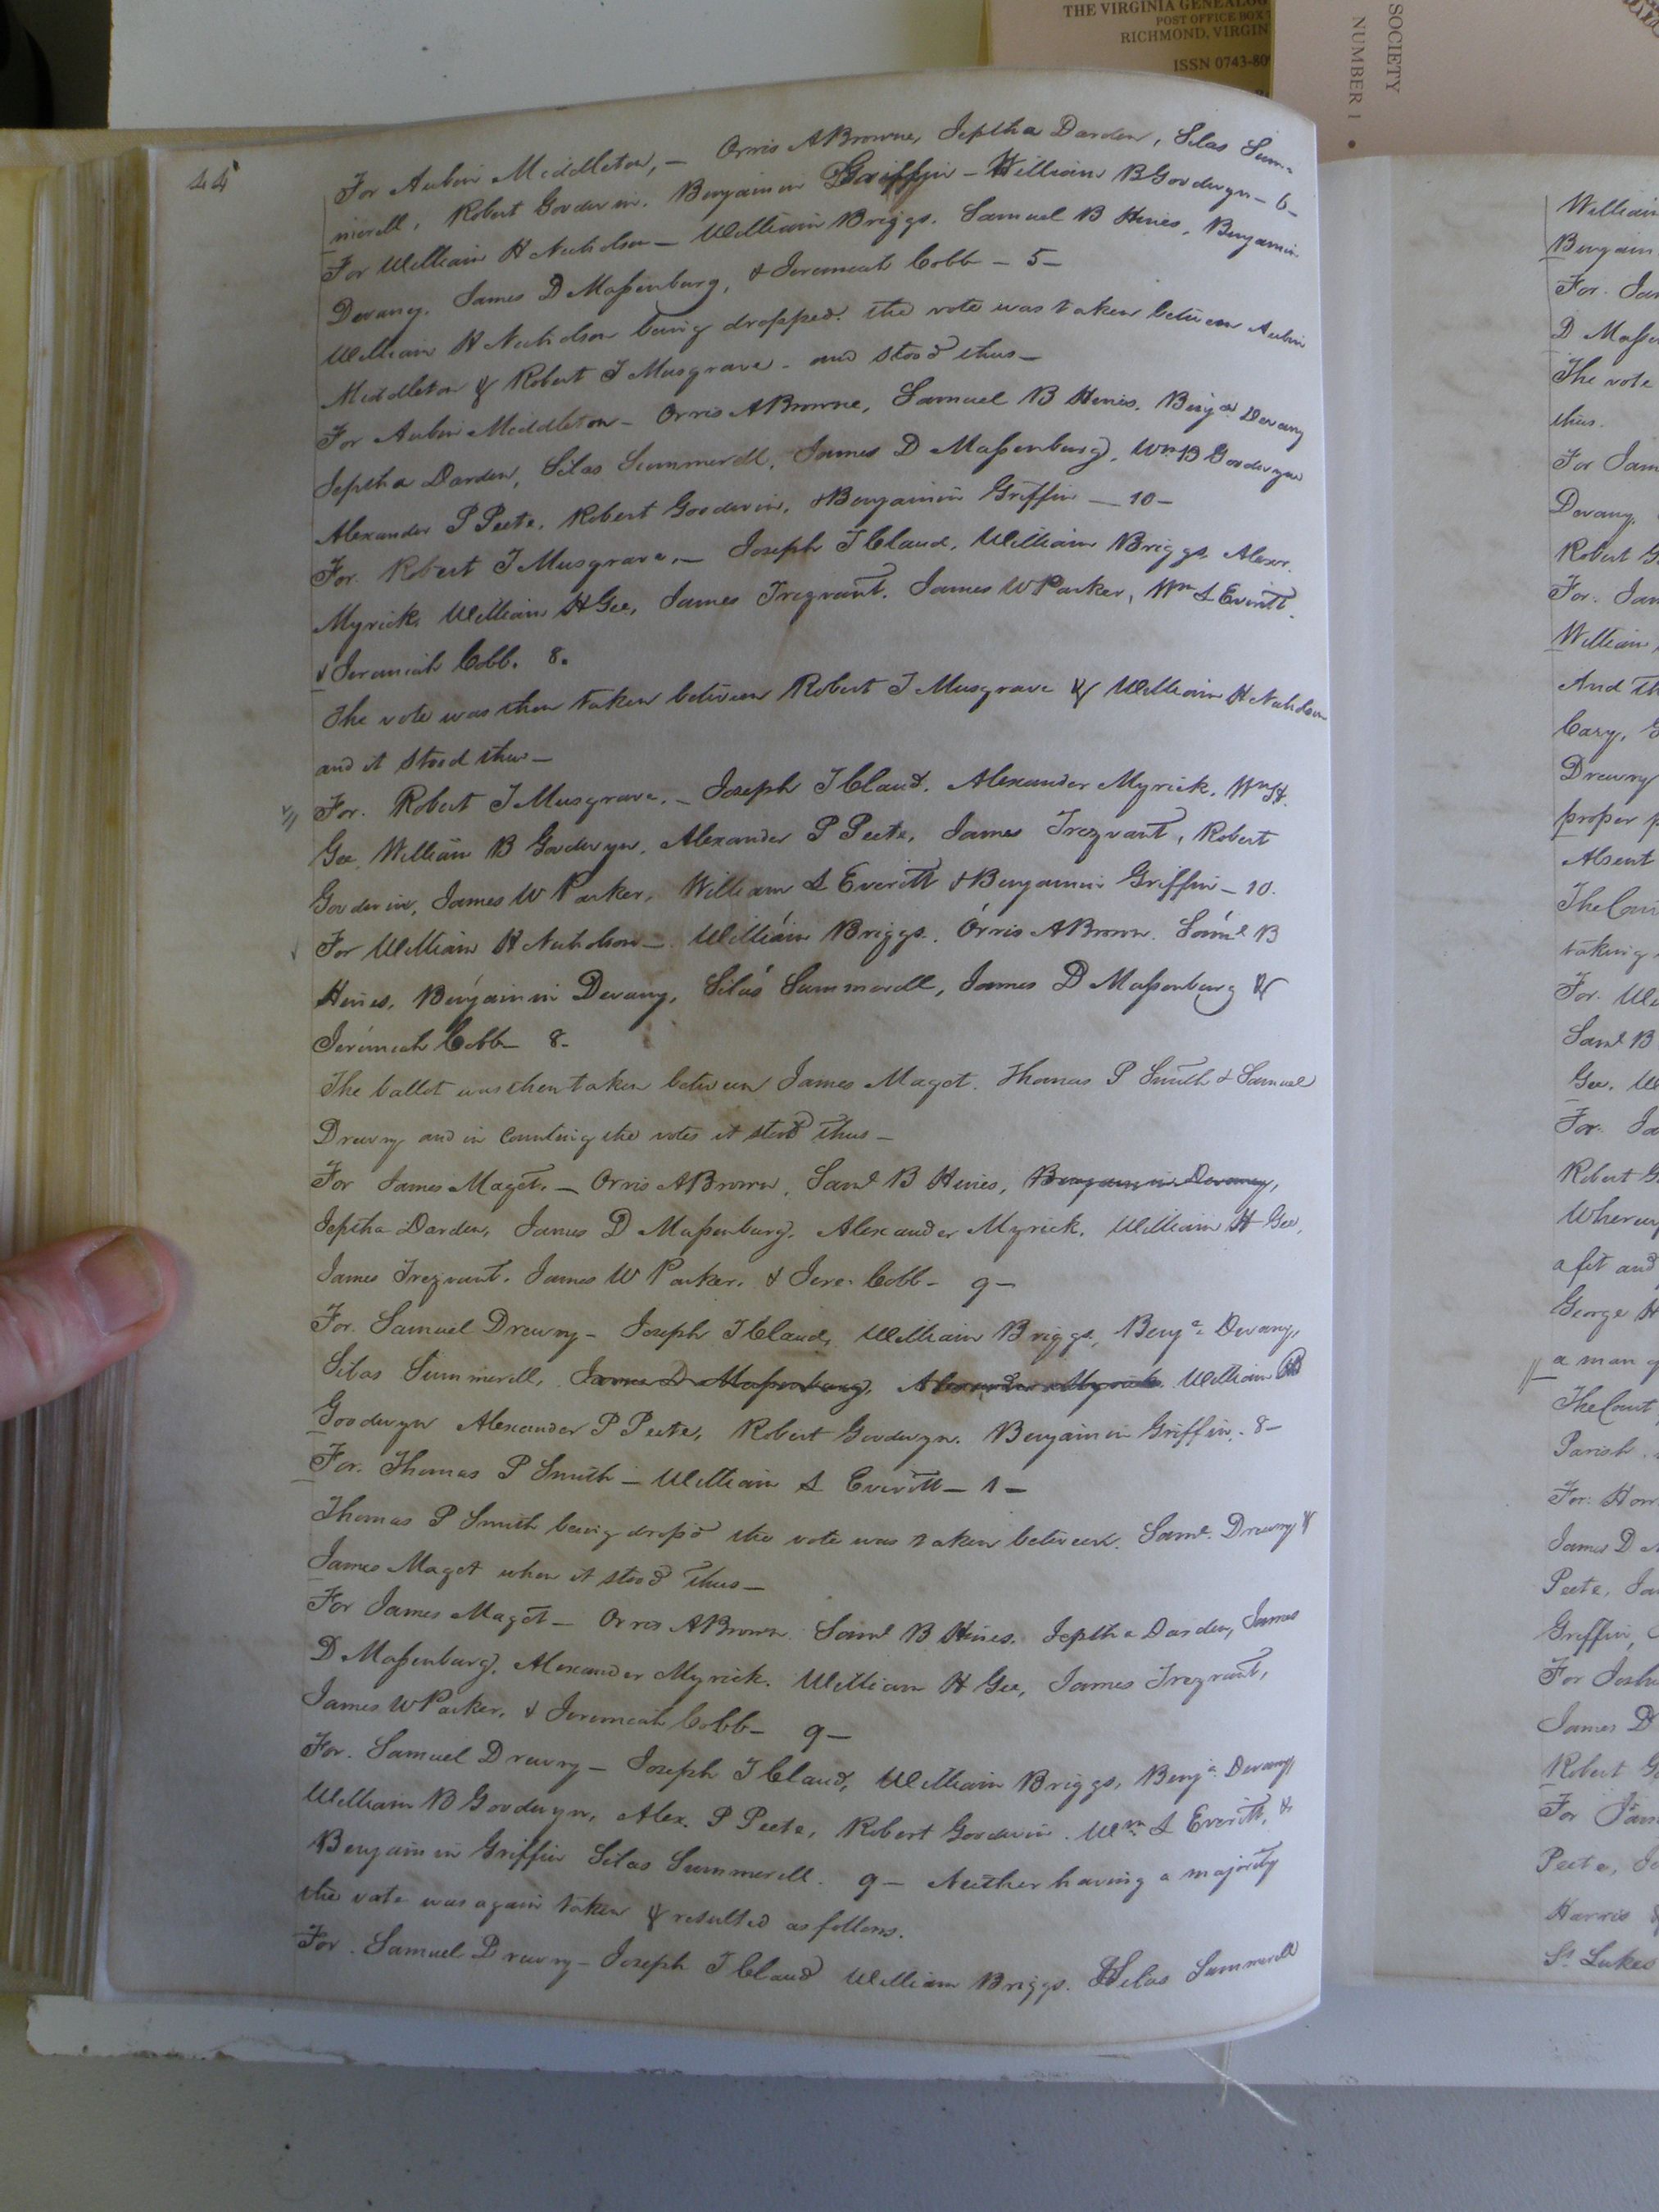 THE VIRGINIA GENEALOG
POST OFFICE BOX
RICHMOND, VIRGIN
ISSN 0743-80
SOCIETY
NUMBER 1 •
44
For Aubin Middleton, – Orris A Browne, Jeptha Darden, Silas Sum-
merell, Robert Goodwin, Benjamin Griffin – William B Goodwyn – 6 –
For William H Nicholson – William Briggs. Samuel B Hines, Benjamin
Devany. James D Maßenburg, & Jeremiah Cobb – 5 –
William H Nicholson being dropped. the vote was taken between Aubin
Middleton & Robert T Musgrave – and stood thus –
For Aubin Middleton – Orris A Browne, Samuel B Hines, Benja Devany
Jeptha Darden, Silas Summerell, James D Maßenburg, Wm B Goodwyn
Alexander P Peete, Robert Goodwin, & Benjamin Griffin — 10 –
For. Robert T Musgrave. – Joseph T Claud, William Briggs. Alexr.
Myrick, William H Gee, James Trezvant. James W Parker, Wm S Everitt.
& Jeremiah Cobb. 8.
The vote was then taken between Robert T Musgrave & William H Nicholson
and it stood thus –
For. Robert T Musgrave. – Joseph T Claud. Alexander Myrick. Wm H.
Gee, William B Goodwyn, Alexander P Peete, James Trezvant, Robert
Goodwin, James W Parker, William S Everitt & Benjamin Griffin – 10.
For William H Nicholson – William Briggs. Orris A Brown. Saml B
Hines, Benjamin Devany, Silas Summerell, James D Maßenburg &
Jeremiah Cobb – 8 –
The ballot was then taken between James Maget. Thomas P Smith & Samuel
Drewry and in Counting the votes it stood thus –
For James Maget. – Orris A Brown, Saml B Hines, Benjamin Devany,
Jeptha Darden, James D Maßenburg, Alexander Myrick. William H Gee,
James Trezvant. James W Parker. & Jere. Cobb – 9 –
For. Samuel Drewry – Joseph T Claud, William Briggs, Benja Devany,
Silas Summerell, James D Maßenburg, Alexander Myrick. William B
Goodwyn Alexander P Peete, Robert Goodwyn. Benjamin Griffin – 8 –
For. Thomas P Smith – William S Everitt – 1 –
Thomas P Smith being dropd the vote was taken between. Saml. Drewry &
James Maget when it stood thus –
For James Maget – Orris A Brown. Saml B Hines. Jeptha Darden, James
D Maßenburg, Alexander Myrick. William H Gee, James Trezvant,
James W Parker, & Jeremiah Cobb – 9 –
For. Samuel Drewry – Joseph T Claud, William Briggs, Benja Devany,
William B Goodwyn, Alex. P Peete, Robert Goodwin. Wm S Everitt, &
Benjamin Griffin Silas Summerell. 9 – Neither having a majority
the vote was again taken & resulted as follows.
For. Samuel Drewry – Joseph T Claud William Briggs. Silas Summerell
William
Benjamin
For. Jam
D Maße
The vote
thus.
For Jam
Devany,
Robert G
For. Jam
William
And th
Cary, G
Drewry
proper p
Absent
The Cour
taking
For. Wi
Saml B
Gee, W
For. Ja
Robert G
Whereup
a fit and
George H
a man of
The Court
Parish
For. How
James D
Peete, Ja
Griffin,
For Joshu
James D
Robert G
For Jam
Peete, Ja
Harris &
St. Lukes